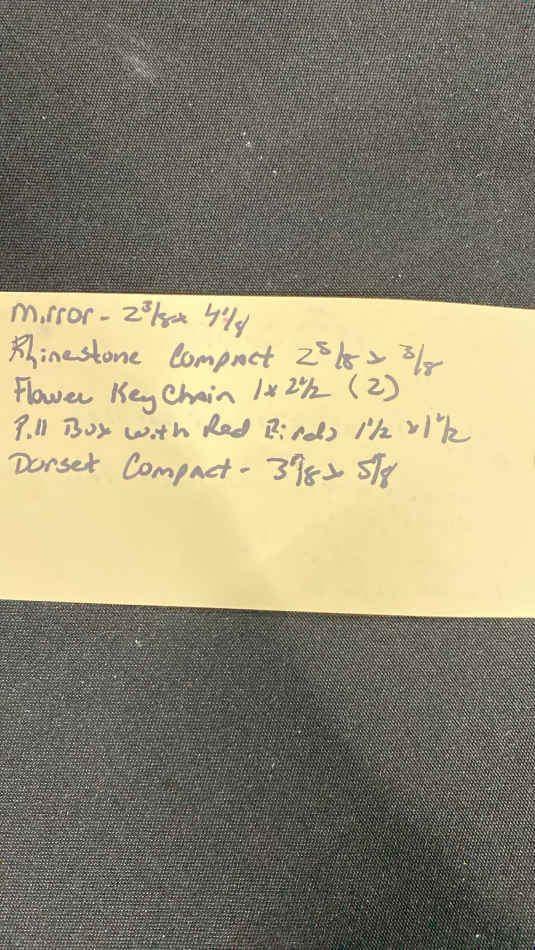 Mirror - 2 3/8 x 4 1/8
Rhinestone Compact 2 5/8 x 3/8
Flower Key Chain 1 x 2 1/2 (2)
Pill Box with Red Birds 1 1/2 x 1 1/2
Dorset Compact - 3 x 5/8